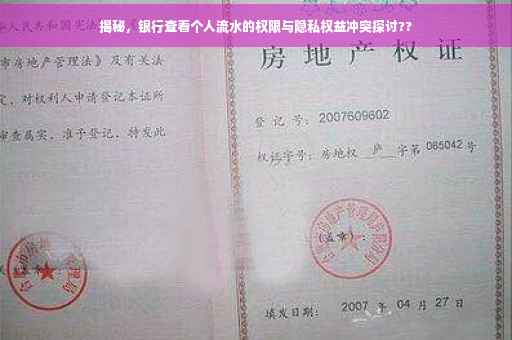 揭秘，银行查看个人流水的权限与隐私权益冲突探讨??
人民共和国宪法
市房地产管理法》及有关法
定，对权利人申请登记本证所
审查属实，准予登记，特发此
房地产权证
登记号：2007609602
权证字号：房地权 庐 字第 065042 号
(盖章)：
填发日期：2007 年 04 月 27 日